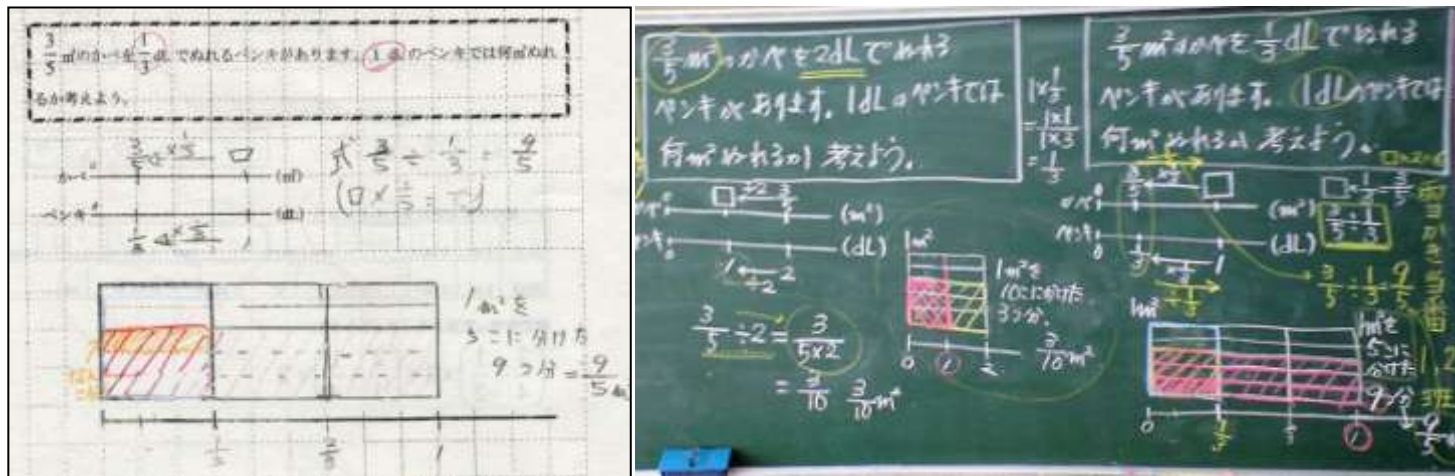 3/5 ㎡のかべを 1/3 dL でぬれるペンキがあります。1 dL のペンキでは何㎡ぬれ
るか考えよう。
3/5 ×1/3 □
かべ 0 (㎡)
ペンキ 0 (dL)
1/3 ×1/3 1
式 3/5 ÷ 1/3 = 9/5
1m²を
5こに分けた
9つ分 = 9/5 m²
1/3 2/3 1
3/5 m²のかべを2dLでぬれる
ペンキがあります。1dLのペンキでは
何m²ぬれるか考えよう。
□ ÷2 3/5
(m²)
(dL)
1 ÷2 2
3/5 ÷2 = 3/(5×2)
= 3/10 3/10 m²
1m²
1m²を
10こに分けた
3つ分。
0 1 2 3/10 m²
1×1/3
= (1×1)/(1×3)
= 1/3
3/5 m²のかべを 1/3 dLでぬれる
ペンキがあります。1dLのペンキでは
何m²ぬれるか考えよう。
3/5 ×1/3 □
かべ 0 (m²)
ペンキ 0 (dL)
1/3 ×1/3 1
÷1/3
□×1/3=3/5
3/5÷1/3
3/5÷1/3=9/5
1m²
1m²を
5こに
分けた
9つ分
0 1/3 2/3 1 9/5